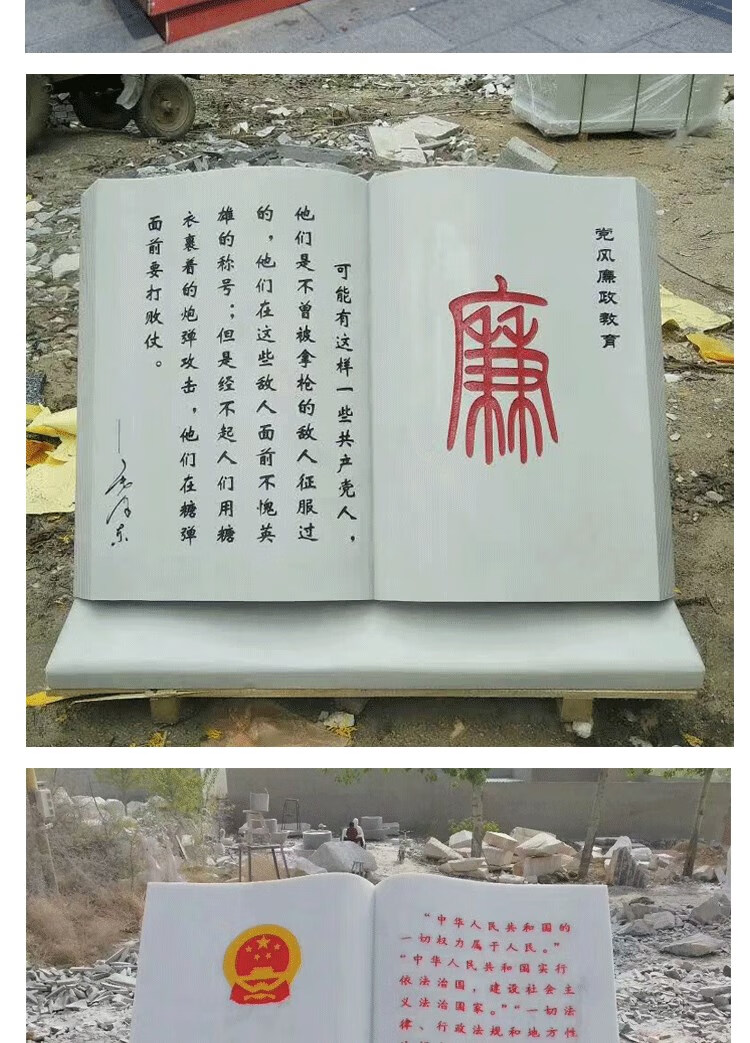 党风廉政教育
廉
可能有这样一些共产党人，
他们是不曾被拿枪的敌人征服过
的，他们在这些敌人面前不愧英
雄的称号；但是经不起人们用糖
衣裹着的炮弹攻击，他们在糖弹
面前要打败仗。
——毛泽东
“中华人民共和国的
一切权力属于人民。”
“中华人民共和国实行
依法治国，建设社会主
义法治国家。”“一切法
律、行政法规和地方性